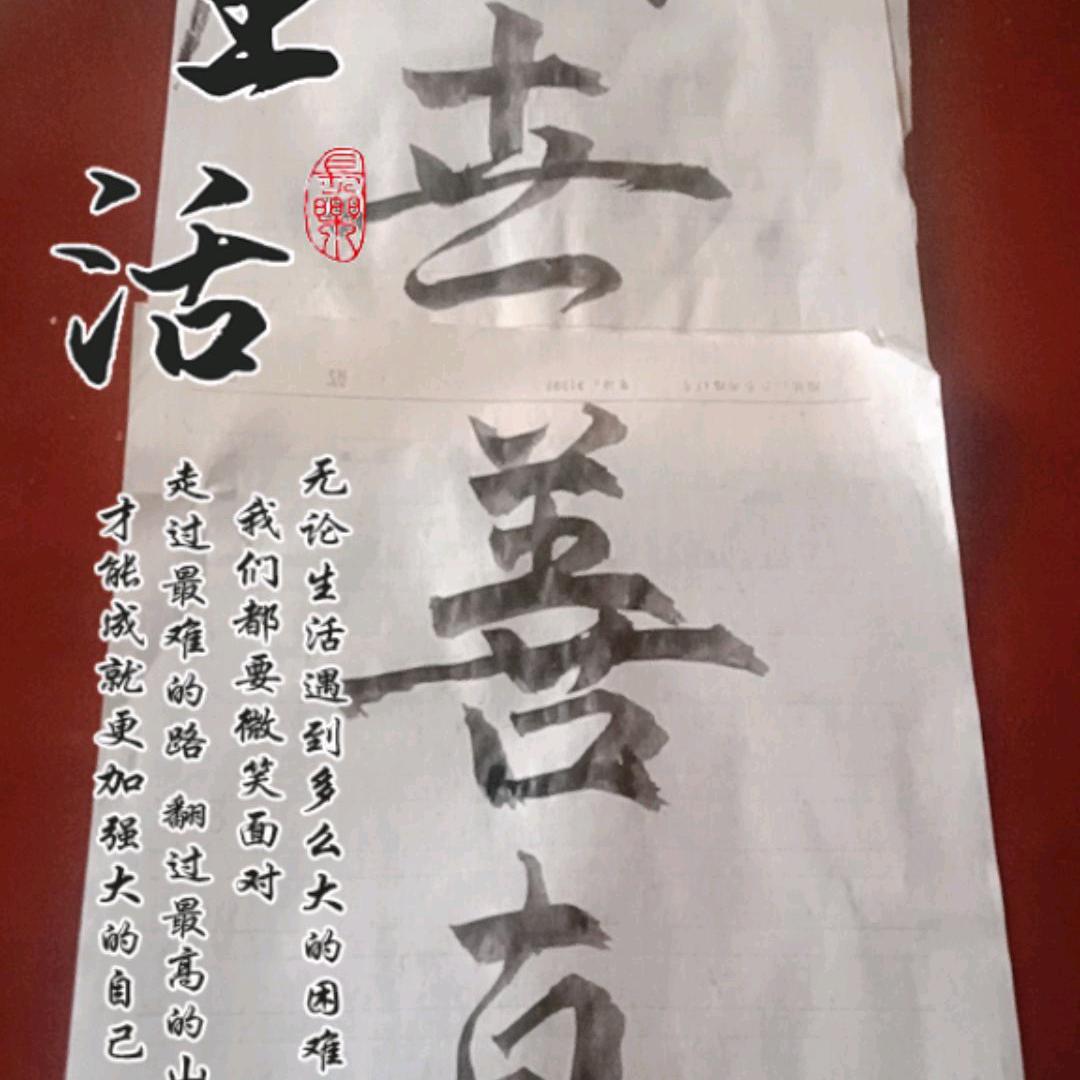 善
生活
无论生活遇到多么大的困难
我们都要微笑面对
走过最难的路 翻过最高的山
才能成就更加强大的自己